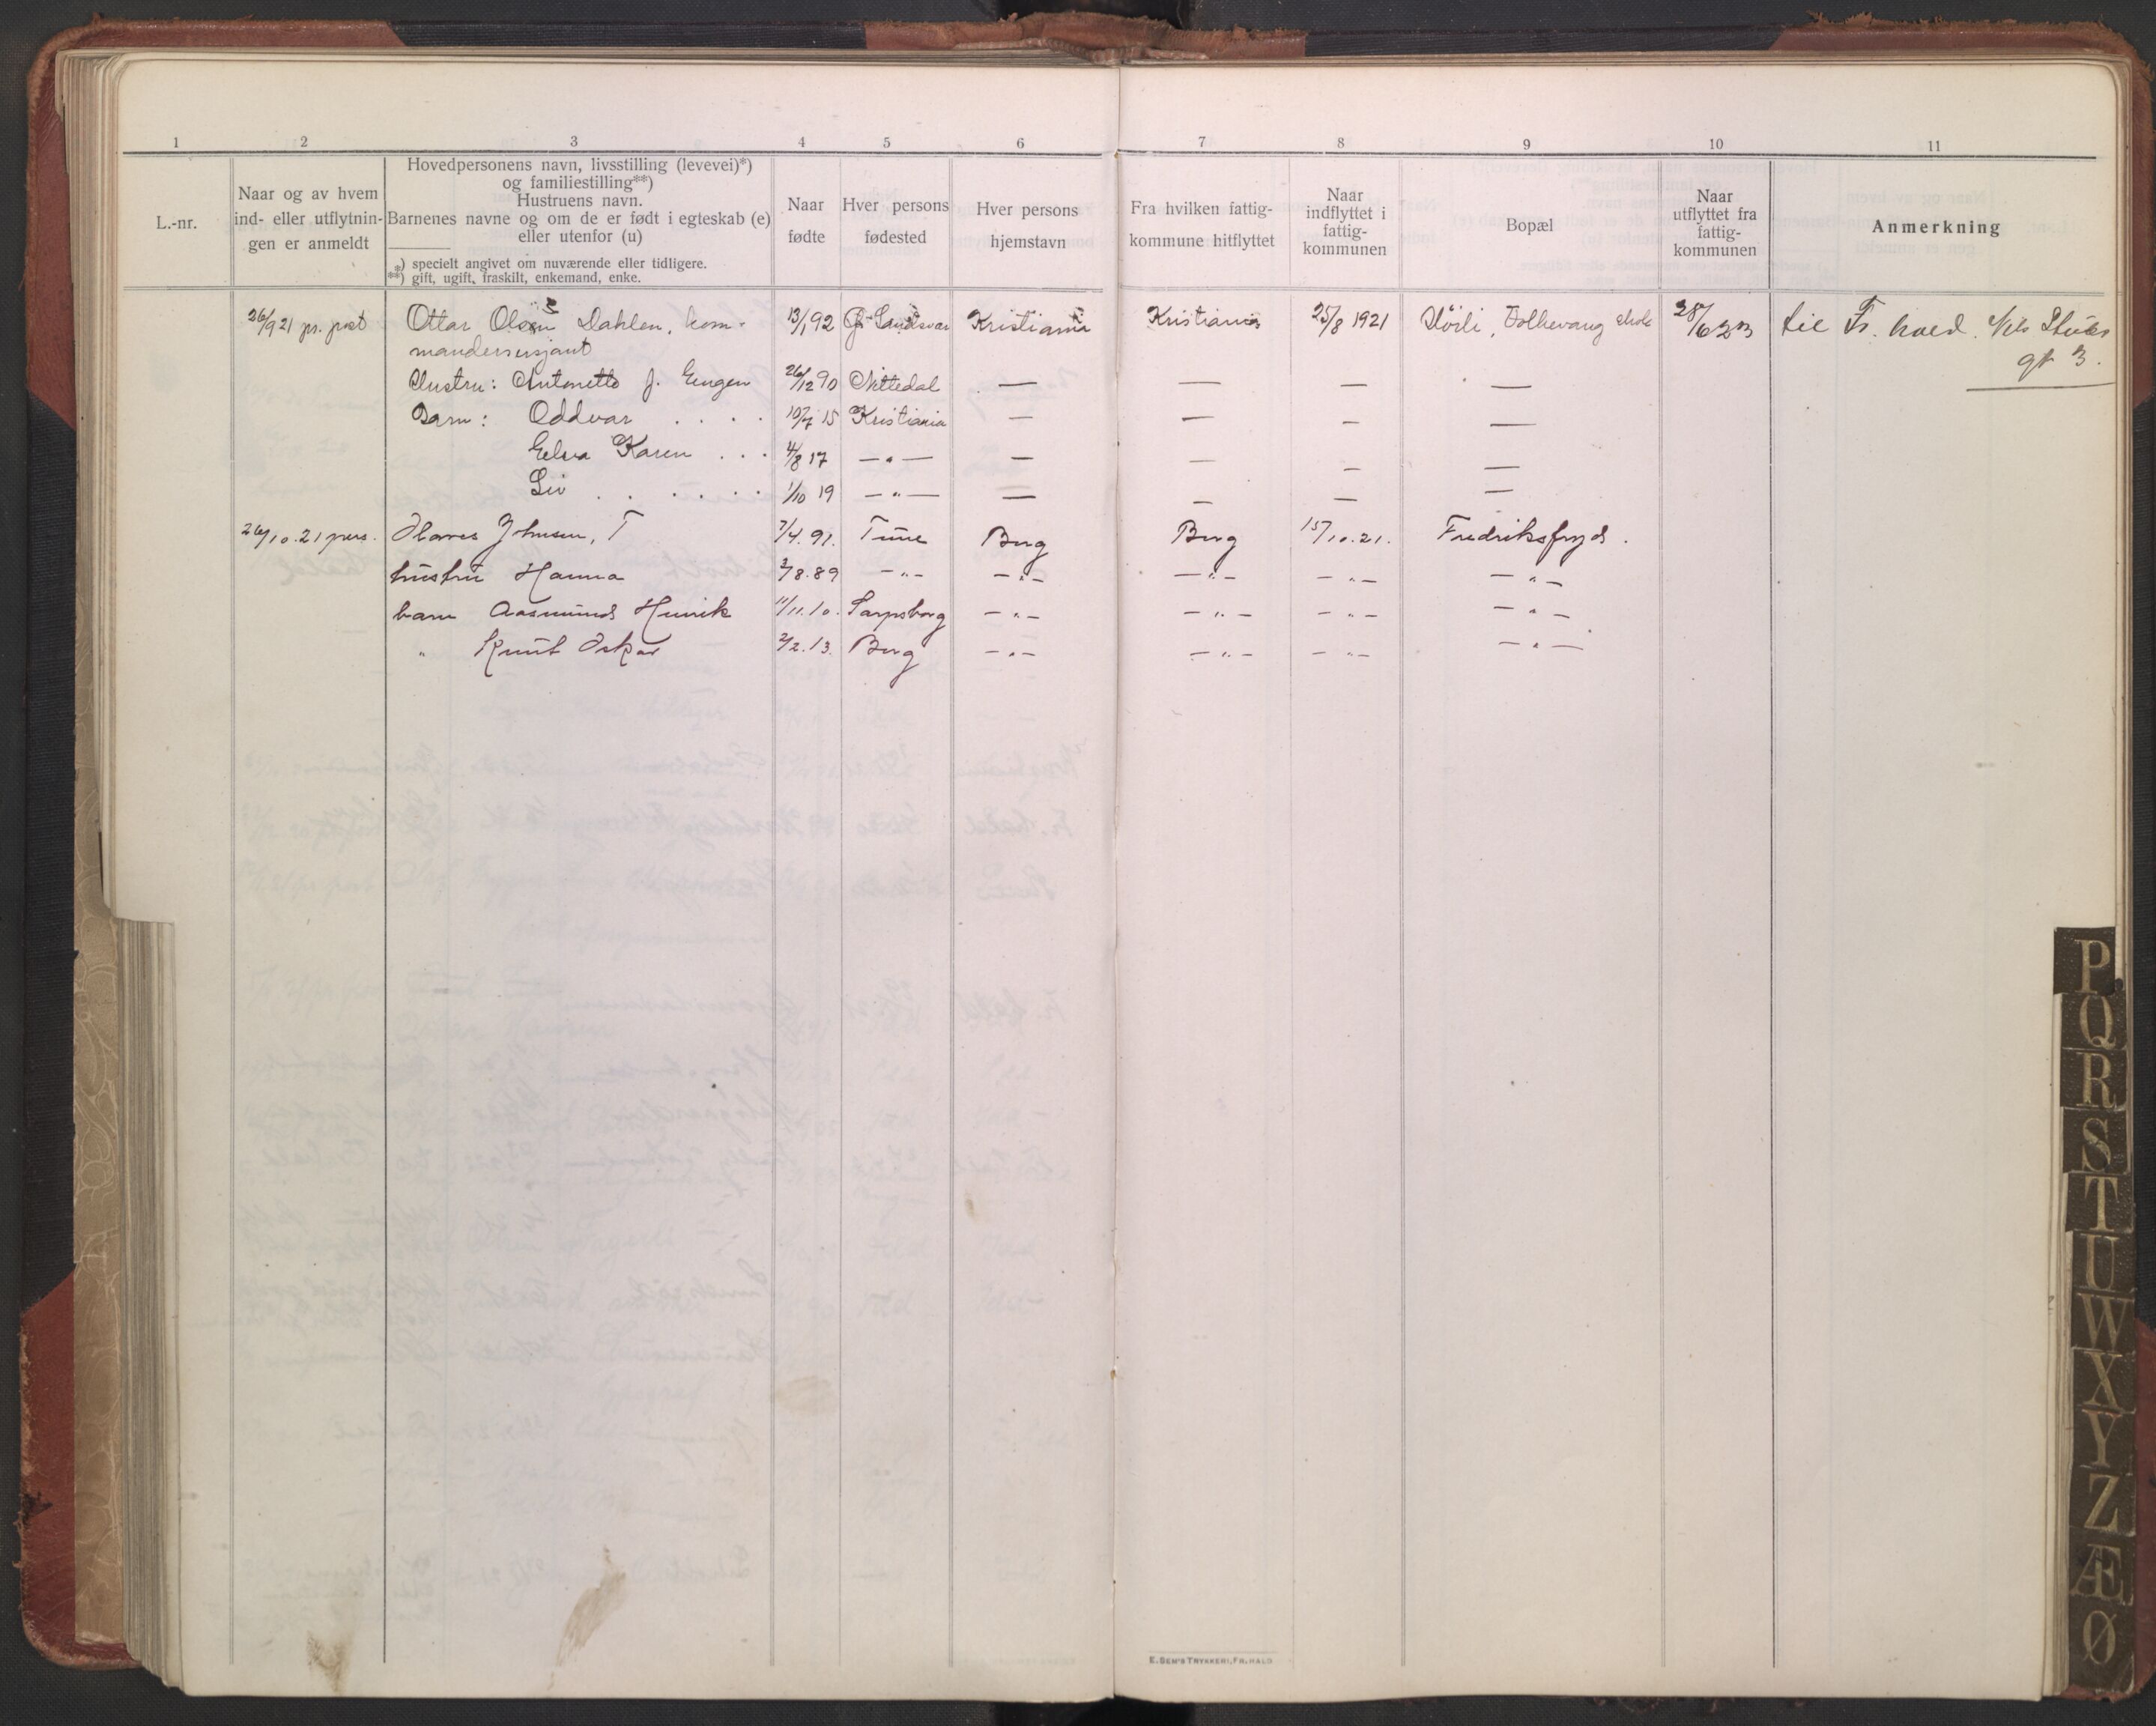 1 2 3 4 5 6 7 8 9 10 11
L.-nr.
Naar og av hvem
ind- eller utflytnin-
gen er anmeldt
Hovedpersonens navn, livsstilling (levevei)*)
og familiestilling**)
Hustruens navn.
Barnenes navne og om de er født i egteskab (e)
eller utenfor (u)
*) specielt angivet om nuværende eller tidligere.
**) gift, ugift, fraskilt, enkemand, enke.
Naar
fødte
Hver persons
fødested
Hver persons
hjemstavn
Fra hvilken fattig-
kommune hitflyttet
Naar
indflyttet i
fattig-
kommunen
Bopæl
Naar
utflyttet fra
fattig-
kommunen
Anmerkning
26/9 21 pr. post Ottar Olsen Dahlen, kom- 13/1 92 Sandsvær Kristiania Kristiania 25/8 1921 Folkevang skole 28/6 23 til Fr. hald.
mandersersjant gt 3.
Hustru: Antonette f. Engen 26/12 90 Nittedal — — — —
Barn: Oddvar . . . . 10/7 15 Kristiania — — — —
Karen . . . 4/8 17 — " — — — — —
Liv . . . . . . 1/10 19 — " — — — — —
26/10.21 pers. 7/4.91. Tune Berg Berg 15/10.21. Fredriksfryd.
hustru Hanna 2/8.89 — " — — " — — " — — " — — " —
barn Aasmund Henrik 11/11.10. Sarpsborg — " — — " — — " — — " —
" Knut Oskar 2/2.13. Berg — " — — " — — " — — " —
E. SEM'S TRYKKERI, FR.HALD
P
Q
R
S
T
U
W
X
Y
Z
Æ
Ø